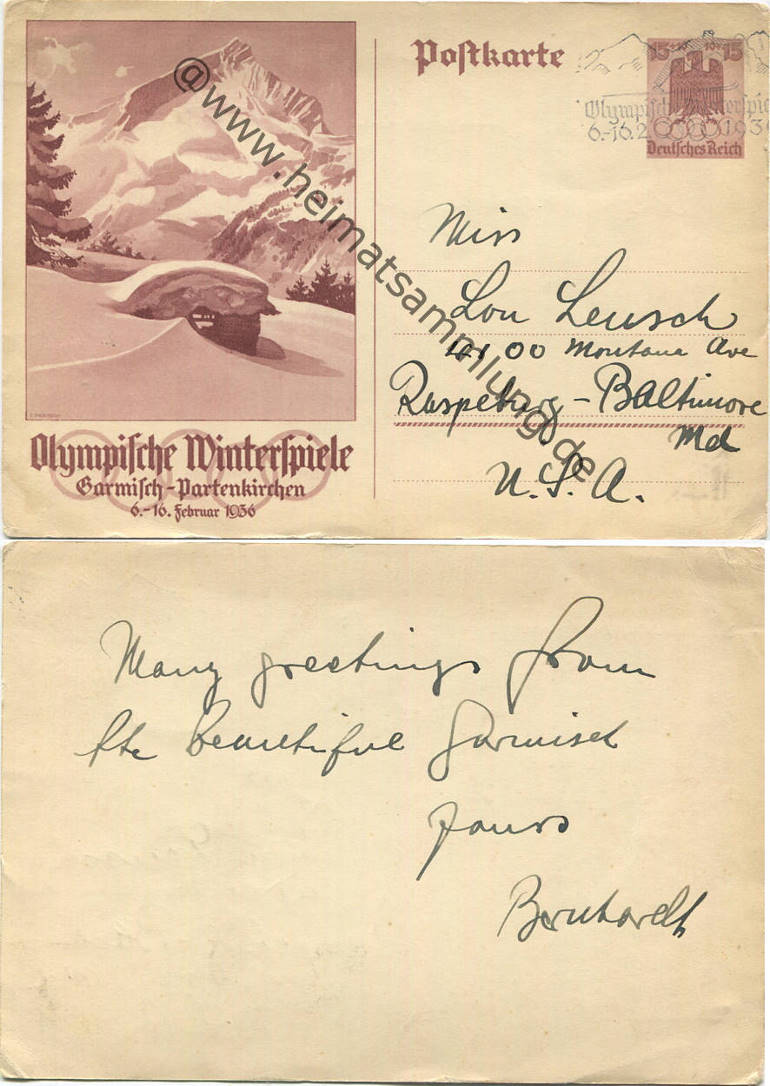 Postkarte
15+10 10+15
Olympische Winterspiele
6.-16.2.1936
Deutsches Reich
Miss
Lou Leusch
00 Montana Ave
Raspeburg - Baltimore
Md
U.S.A.
Olympische Winterspiele
Garmisch-Partenkirchen
6.-16. Februar 1936
@www.heimatsammlung.de
Many greetings from
the beautiful Garmisch
Yours
Bernhardt